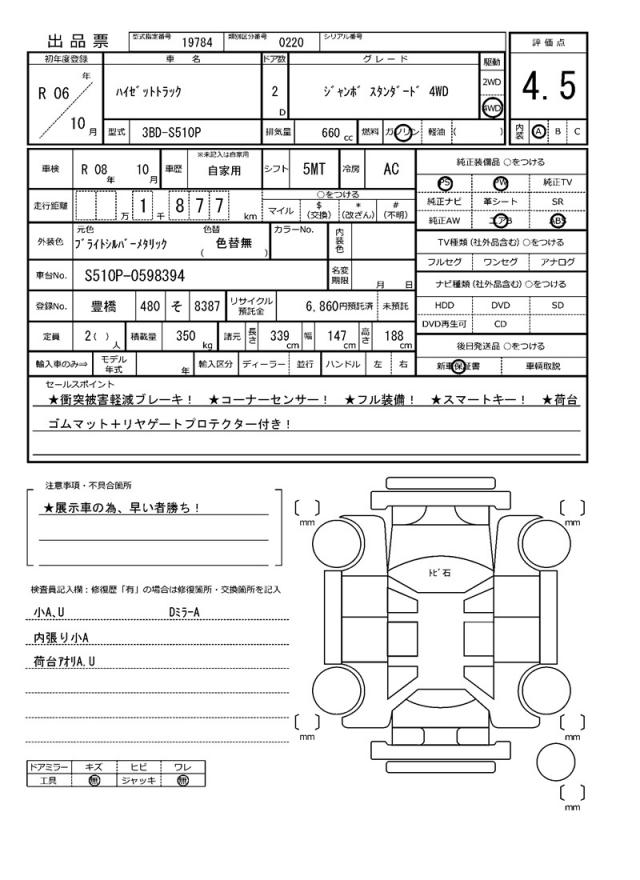 出品票 型式指定番号 19784 類別区分番号 0220 シリアル番号
評価点
4.5
内装 A B C
初年度登録 車名 ドア数 グレード 駆動
R 06 年 10 月
ハイゼットトラック 2 D ジャンボ スタンダード 4WD
2WD
4WD
型式 3BD-S510P 排気量 660 cc 燃料 ガソリン 軽油 ( )
車検 R 08 年 10 月 車歴 ※未記入は自家用 自家用 シフト 5MT 冷房 AC
走行距離 万 1 千 8 7 7 km
○をつける
マイル $(交換) *(改ざん) #(不明)
外装色 元色 ブライトシルバーメタリック 色替 ( 色替無 ) カラーNo. 内装色
車台No. S510P-0598394 名変期限 月 日
登録No. 豊橋 480 そ 8387 リサイクル預託金 6,860円預託済 未預託
定員 2( ) 人 積載量 350 kg 諸元 長さ 339 cm 幅 147 cm 高さ 188 cm
輸入車のみ⇒ モデル年式 年 輸入区分 ディーラー 並行 ハンドル 左 右
純正装備品 ○をつける
PS PW 純正TV
純正ナビ 革シート SR
純正AW エアB ABS
TV種類(社外品含む)○をつける
フルセグ ワンセグ アナログ
ナビ種類(社外品含む)○をつける
HDD DVD SD
DVD再生可 CD
後日発送品 ○をつける
新車保証書 車輌取説
セールスポイント
★衝突被害軽減ブレーキ! ★コーナーセンサー! ★フル装備! ★スマートキー! ★荷台
ゴムマット+リヤゲートプロテクター付き!
注意事項・不具合箇所
★展示車の為、早い者勝ち!
検査員記入欄:修復歴「有」の場合は修復箇所・交換箇所を記入
小A、U Dミラ-A
内張り小A
荷台アオリA、U
ドアミラー キズ ヒビ ワレ
工具 無 ジャッキ 無
[ ] mm
[ ] mm
トビ石
[ ] mm
[ ] mm
[ ] mm